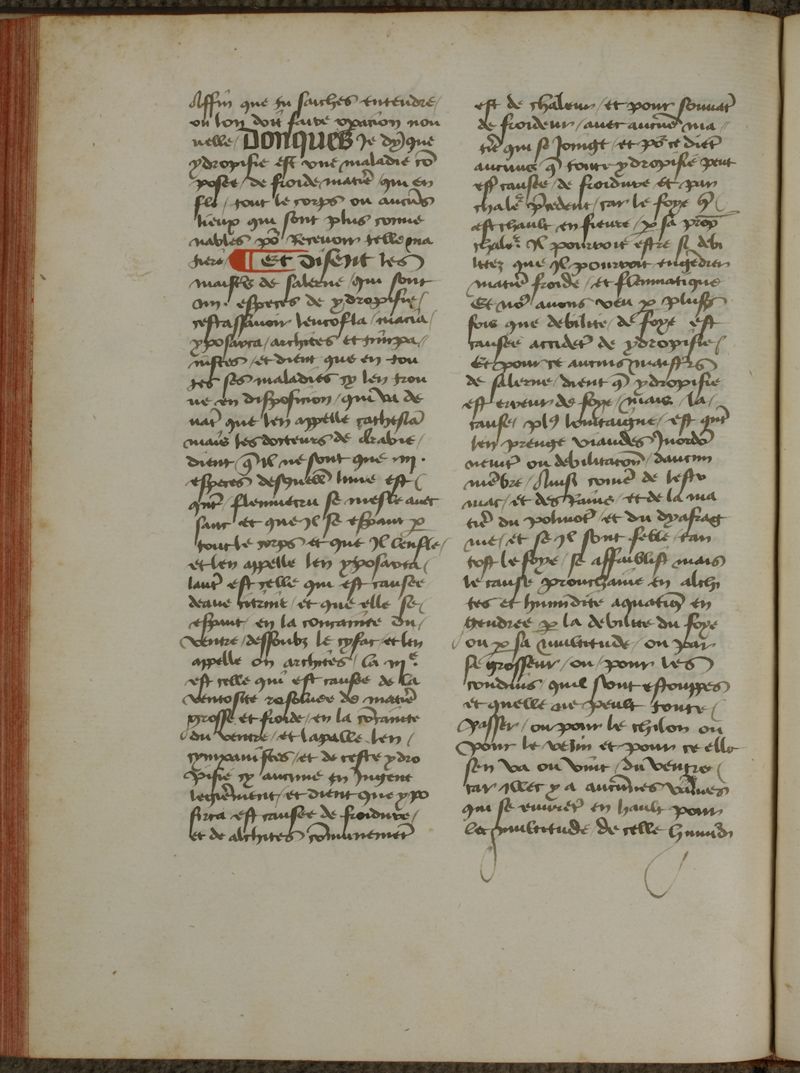 Affin que tu saiches entendre
ou lon doit faire opacion nou
uelle / Donques Je dy que
ydropisie est vne maladie cõ
posee / de froide matiẽ / qui en
fle / tout le corps ou aucũs
lieux qui sont plus conue
nables põ Receuoir telle ma
tiere / Et disent les
maistrẽs de salerne / qui sont
iiii · especes de ydropisie /
cestassauoir leucofla / macia /
yposarca / archites et timpa
nistes / et dient que en tou
tes ses maladies cy len trou
ue en disposicion / qui va de
nat̃ que len appelle cathesia
mais les docteurs de Arabie /
dient q̃ il ne sont que iii ·
especes desquell̃ lune est
qñt / flemnecru se mesle auec
sanc et que Jl se espant p̃
tout le corps et que Jl lenfle /
et len appelle len yposarca /
laut̃ est celle qui est causee
deaue citrine / et que elle se
espant en la concauite du
ventre / dessoubz le cyfac / et len
appelle on archites / la iiiᵉ ·
est celle qui est causee de la
ventosite resoluee de matiẽ
grosse et froide / en la cõcauite
du ventre / et lapalle len /
tympanistes / et de ceste ydro
pisie cy aucune en Jngent
legieremẽt / et dient que ypo
sirca est causee de froidure /
et de alchites cõmunemẽt
est de chaleur / et pour souuãt
de froideur / auec aucũe ma
tiẽ qui se Joingt / et põ ce diẽt
aucuns q̃ toute ydropisie peut
est̃ causee / de froidure et par
chalẽ p̃cedent / car le foye q̃
est chault en fieure / p̃ sa prop̃
chalẽ Jl pourroit estre si debi
litez que Jl pourroit engẽdrer
matiẽ froide / et flemmatique
Et noꝰ auons veu p̃ plusrs̃
fois que debilite / de foye est
causee accidẽt de ydropisie /
Et pour ce aucuns maistrs̃
de salerne / dient q̃ ydropisie
est erreur de foye / mais la
cause / plꝰ loingtaigne / est qñt
len prenge viandes Jnordõ
nemẽt ou debilitacõn / daucun
mẽbre / Ainsi cõmẽ de lesto
mac / et des Rains / et de la ma
tiẽ du polmõ / et du dyafrag
me / et se Jl sont feble / tan
tost le foye / se affaiblist mais
le cause prouchaine en alchi
tes et humidite aquatiq̃ en
gendree p̃ la debilite du foye
ou p̃ sa multitude / ou par
se grosseur / ou / pour les
conduis / quil sont estoupes
et quelle ne peult toute
passer / ou pour le chilon ou
pour le vezin et pour ce elle
sen va ou vuit / du ventre /
car illec y a aucũnes vaines
qui se euurẽt en hault pour
le multitude de celle humidi